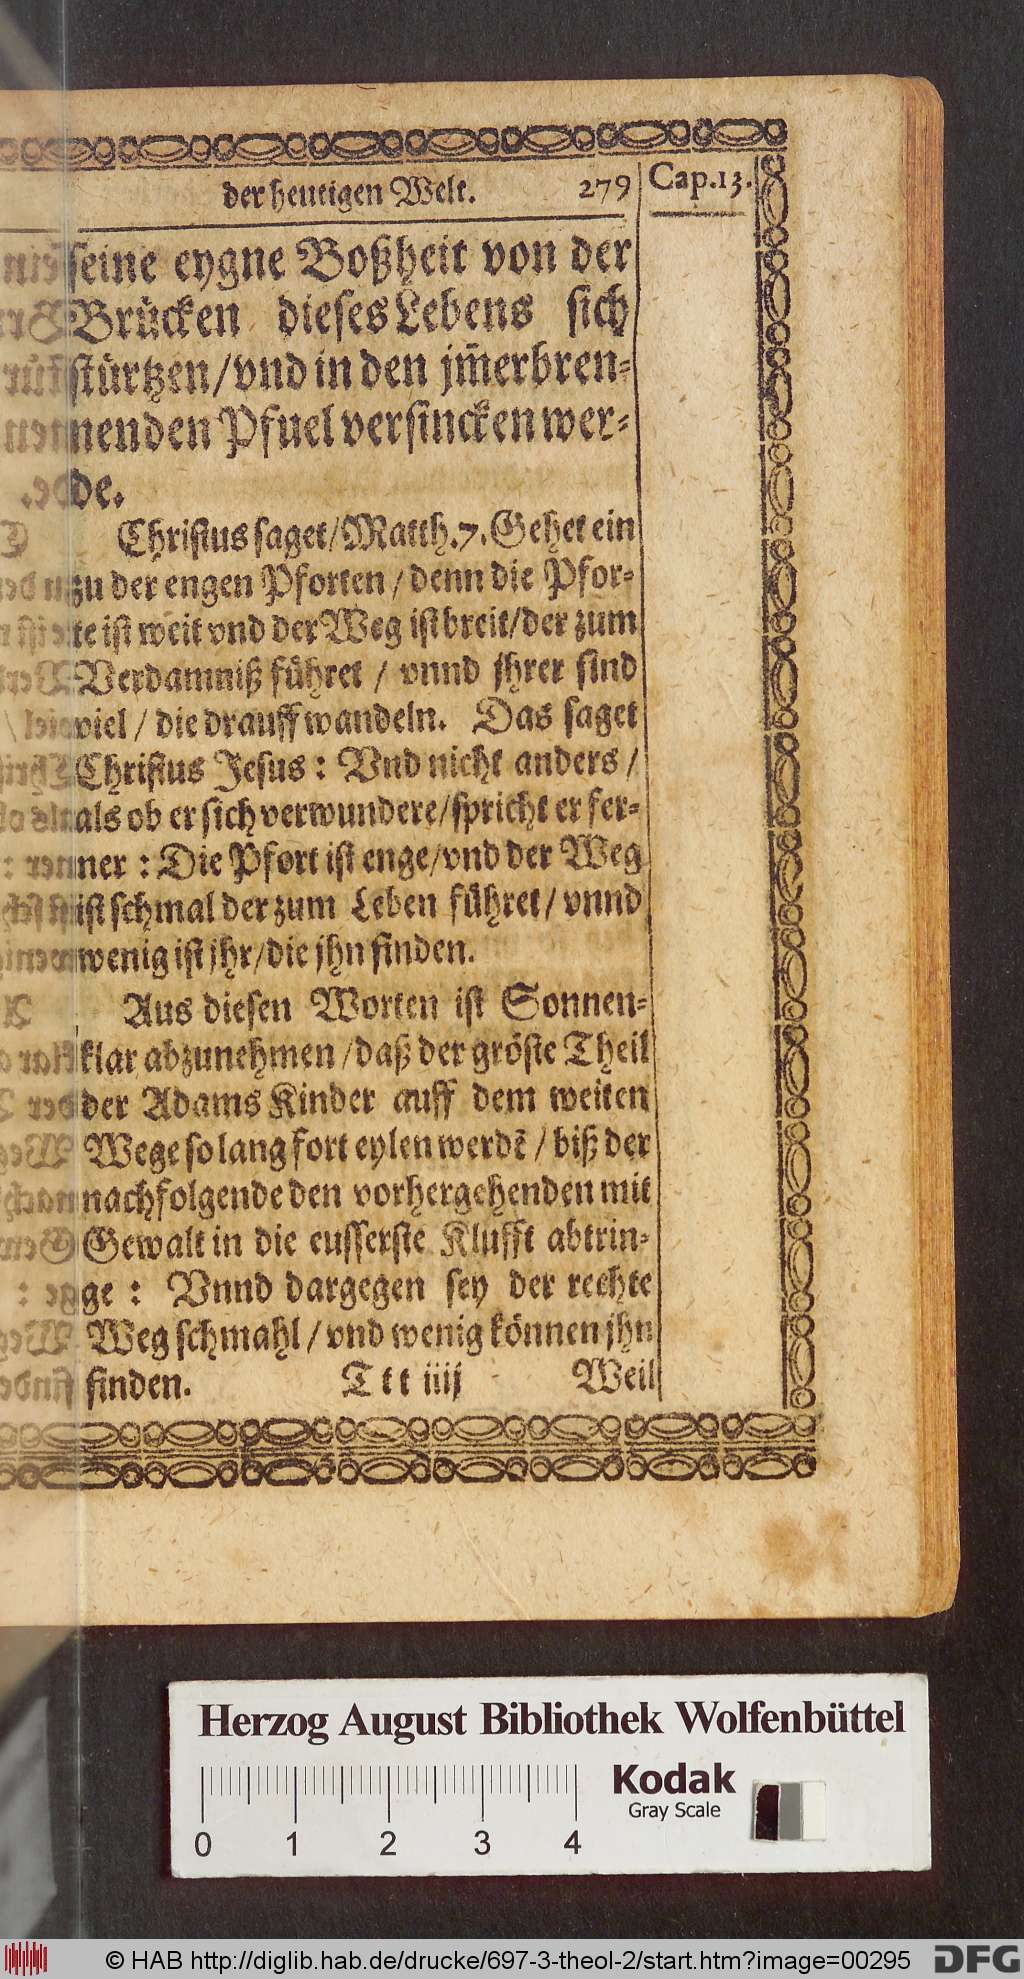 der heutigen Welt. 279 Cap.13.
seine eygne Boßheit von der
Brücken dieses Lebens sich
stürtzen/vnd in den jm̃erbren-
nenden Pfuel versincken wer-
de.
Christus saget/Matth.7.Gehet ein
zu der engen Pforten / denn die Pfor-
te ist weit vnd der Weg ist breit/der zum
Verdamniß führet / vnnd jhrer sind
viel / die drauff wandeln. Das saget
Christus Jesus : Vnd nicht anders /
als ob er sich verwundere/spricht er fer-
ner : Die Pfort ist enge/vnd der Weg
ist schmal der zum Leben führet/ vnnd
wenig ist jhr/die jhn finden.
Aus diesen Worten ist Sonnen-
klar abzunehmen /daß der gröste Theil
der Adams Kinder auff dem weiten
Wege so lang fort eylen werdẽ / biß der
nachfolgende den vorhergehenden mit
Gewalt in die eusserste Klufft abtrin-
ge : Vnnd dargegen sey der rechte
Weg schmahl / vnd wenig können jhn
finden. Ttt iiij Weil
Herzog August Bibliothek Wolfenbüttel
Kodak
Gray Scale
0 1 2 3 4
© HAB http://diglib.hab.de/drucke/697-3-theol-2/start.htm?image=00295 DFG